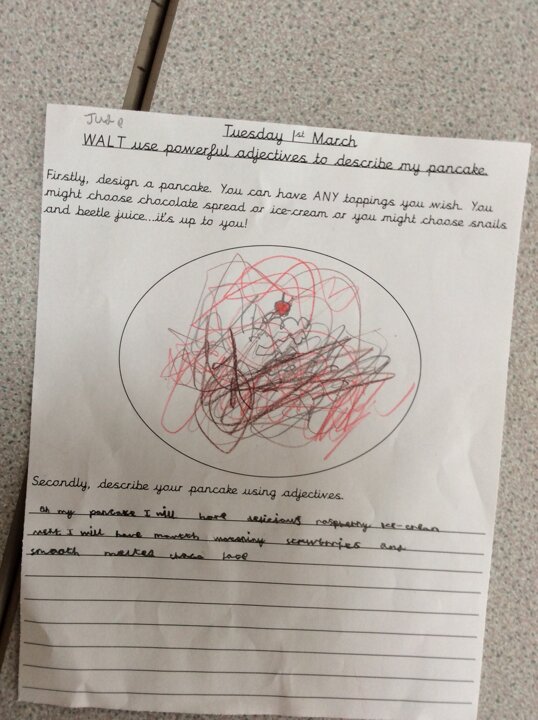 Jude
Tuesday 1st March
WALT use powerful adjectives to describe my pancake.
Firstly, design a pancake. You can have ANY toppings you wish. You
might choose chocolate spread or ice-cream or you might choose snails
and beetle juice...it's up to you!
Secondly, describe your pancake using adjectives.
my pancake I will have raspberry ice-crean
next I will have and
smooth choco